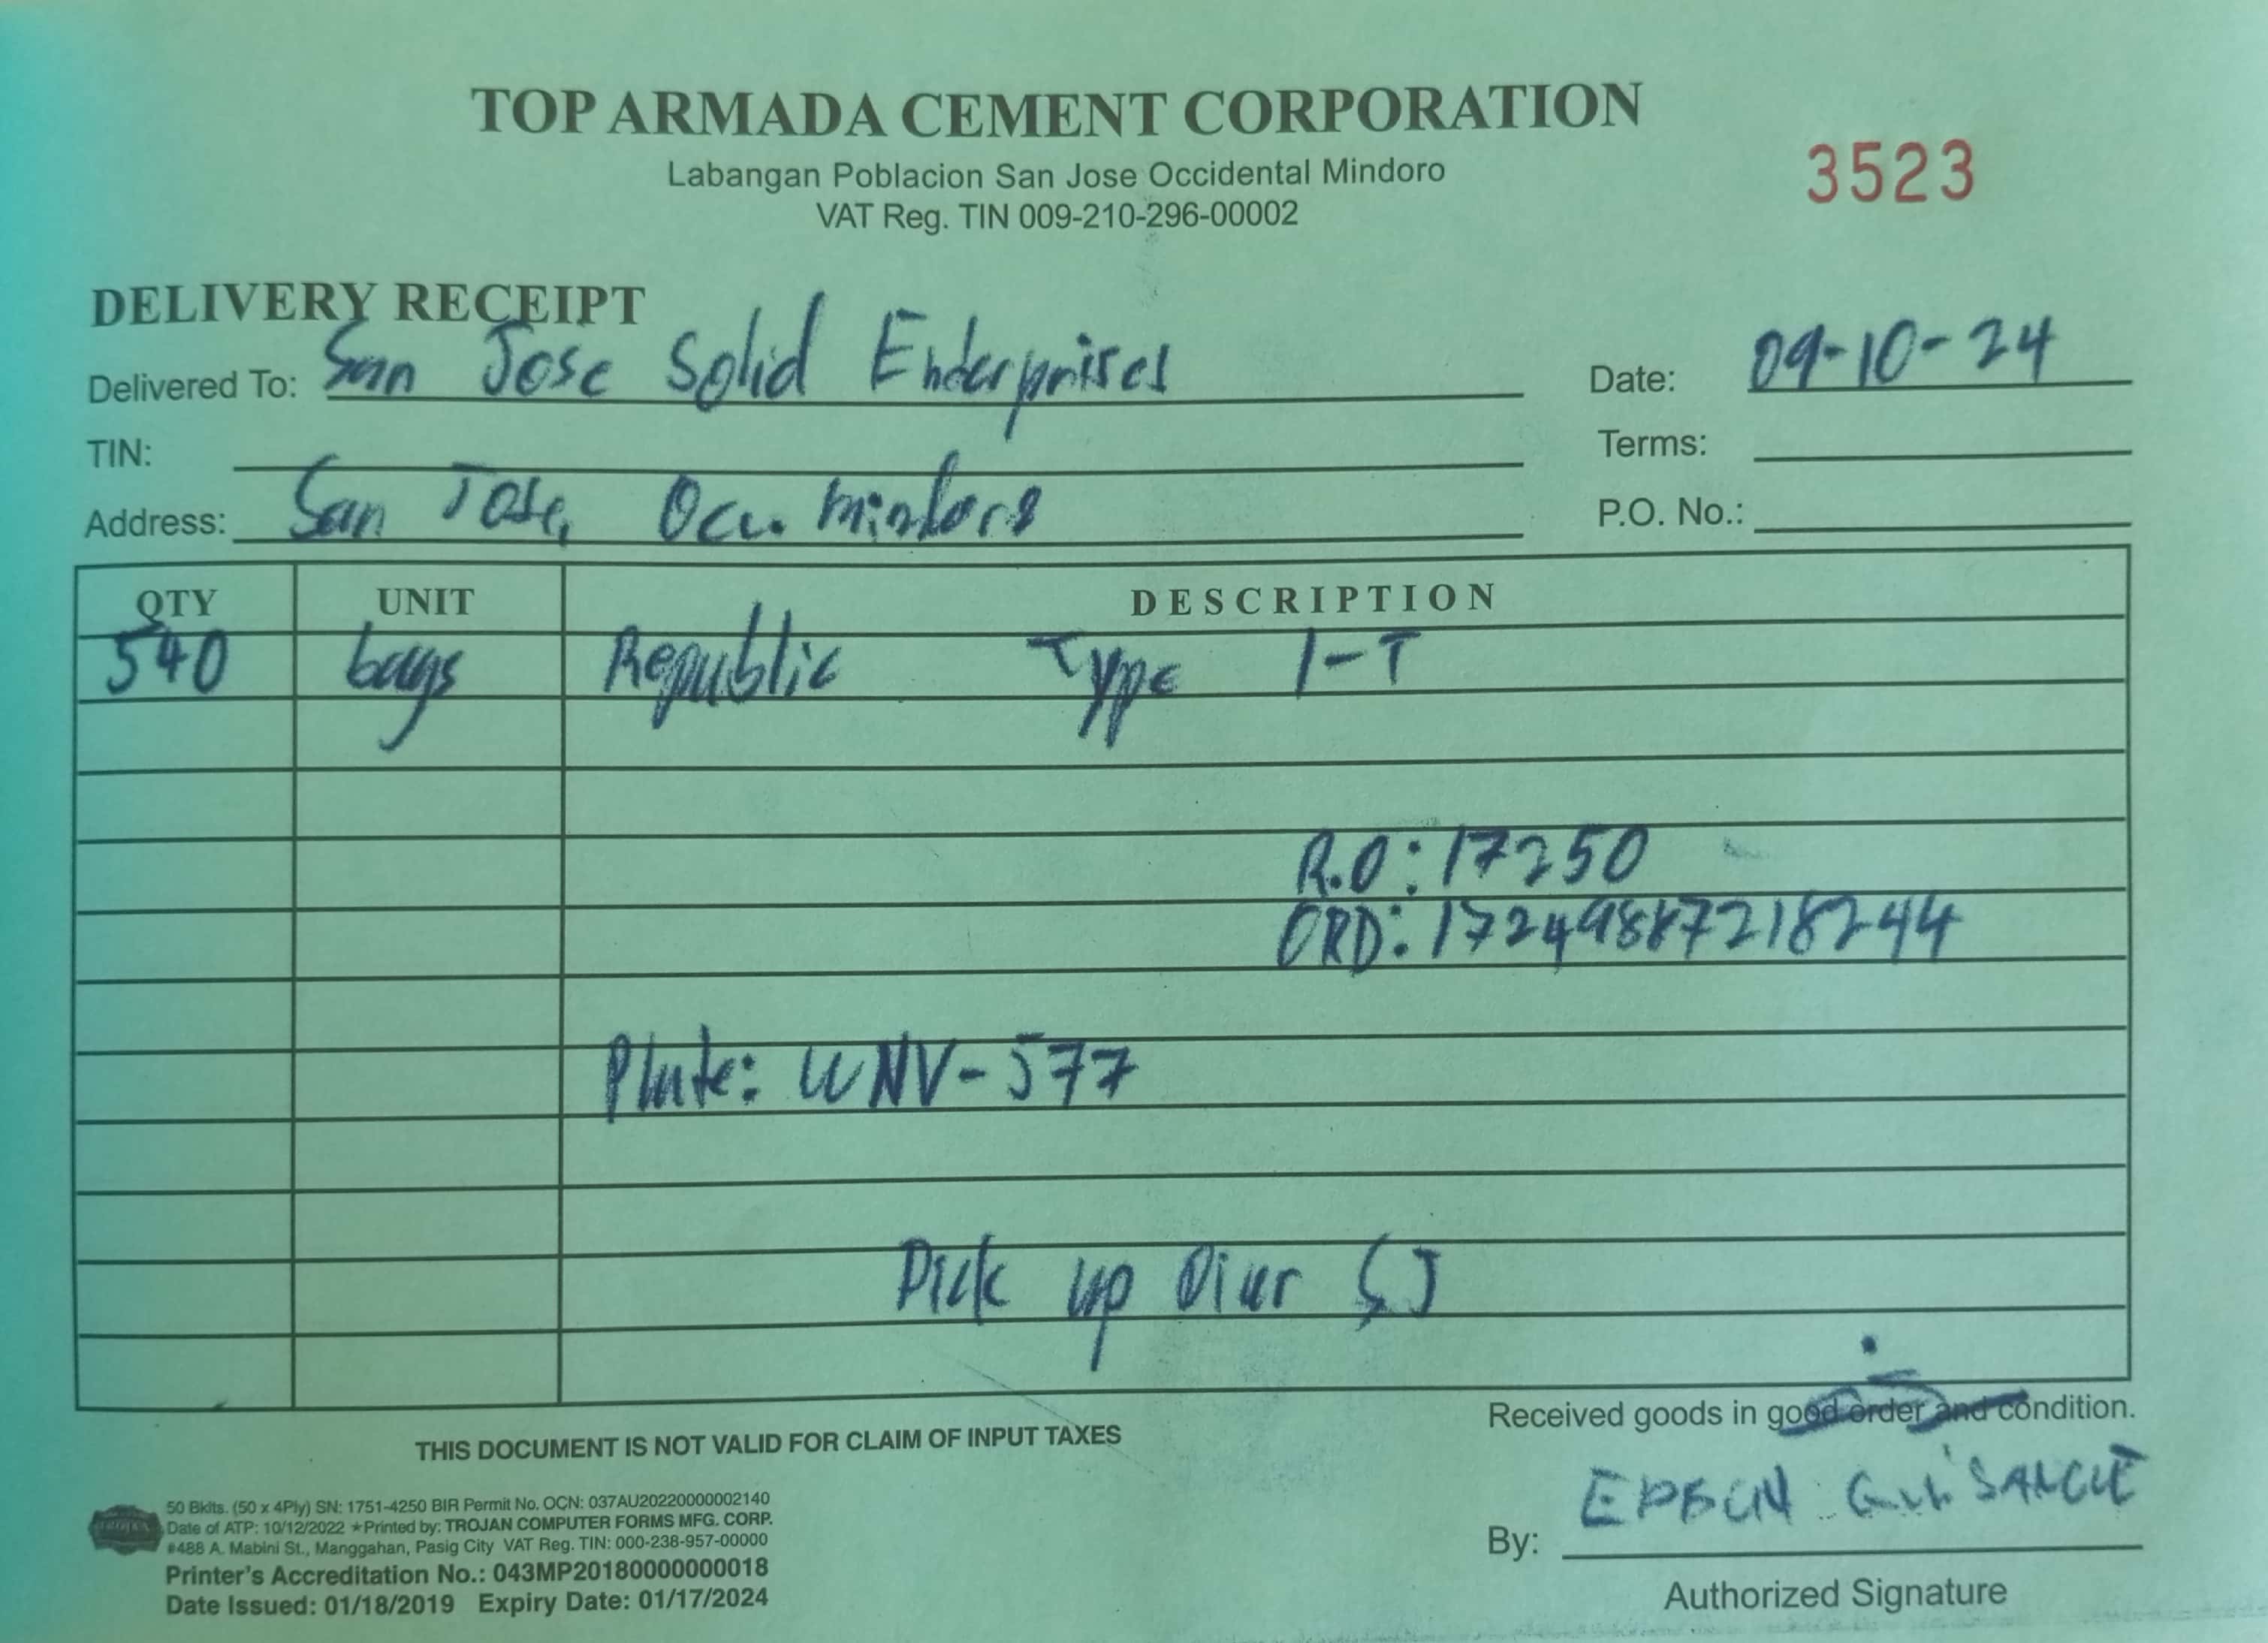 TOP ARMADA CEMENT CORPORATION
Labangan Poblacion San Jose Occidental Mindoro
VAT Reg. TIN 009-210-296-00002
3523
DELIVERY RECEIPT
Delivered To: San Jose Solid Enterprises
Date: 09-10-24
TIN:
Terms:
Address: San Jose, Occ. Mindoro
P.O. No.:
QTY UNIT DESCRIPTION
540 bags Republic Type 1-T
R.O: 17250
ORD: 17249887218244
Plate: WNV-577
Pick up SJ
THIS DOCUMENT IS NOT VALID FOR CLAIM OF INPUT TAXES
Received goods in good order and condition.
50 Bklts. (50 x 4Ply) SN: 1751-4250 BIR Permit No. OCN: 037AU20220000002140
Date of ATP: 10/12/2022 ★Printed by: TROJAN COMPUTER FORMS MFG. CORP.
#488 A. Mabini St., Manggahan, Pasig City VAT Reg. TIN: 000-238-957-00000
Printer's Accreditation No.: 043MP20180000000018
Date Issued: 01/18/2019 Expiry Date: 01/17/2024
By:
Authorized Signature